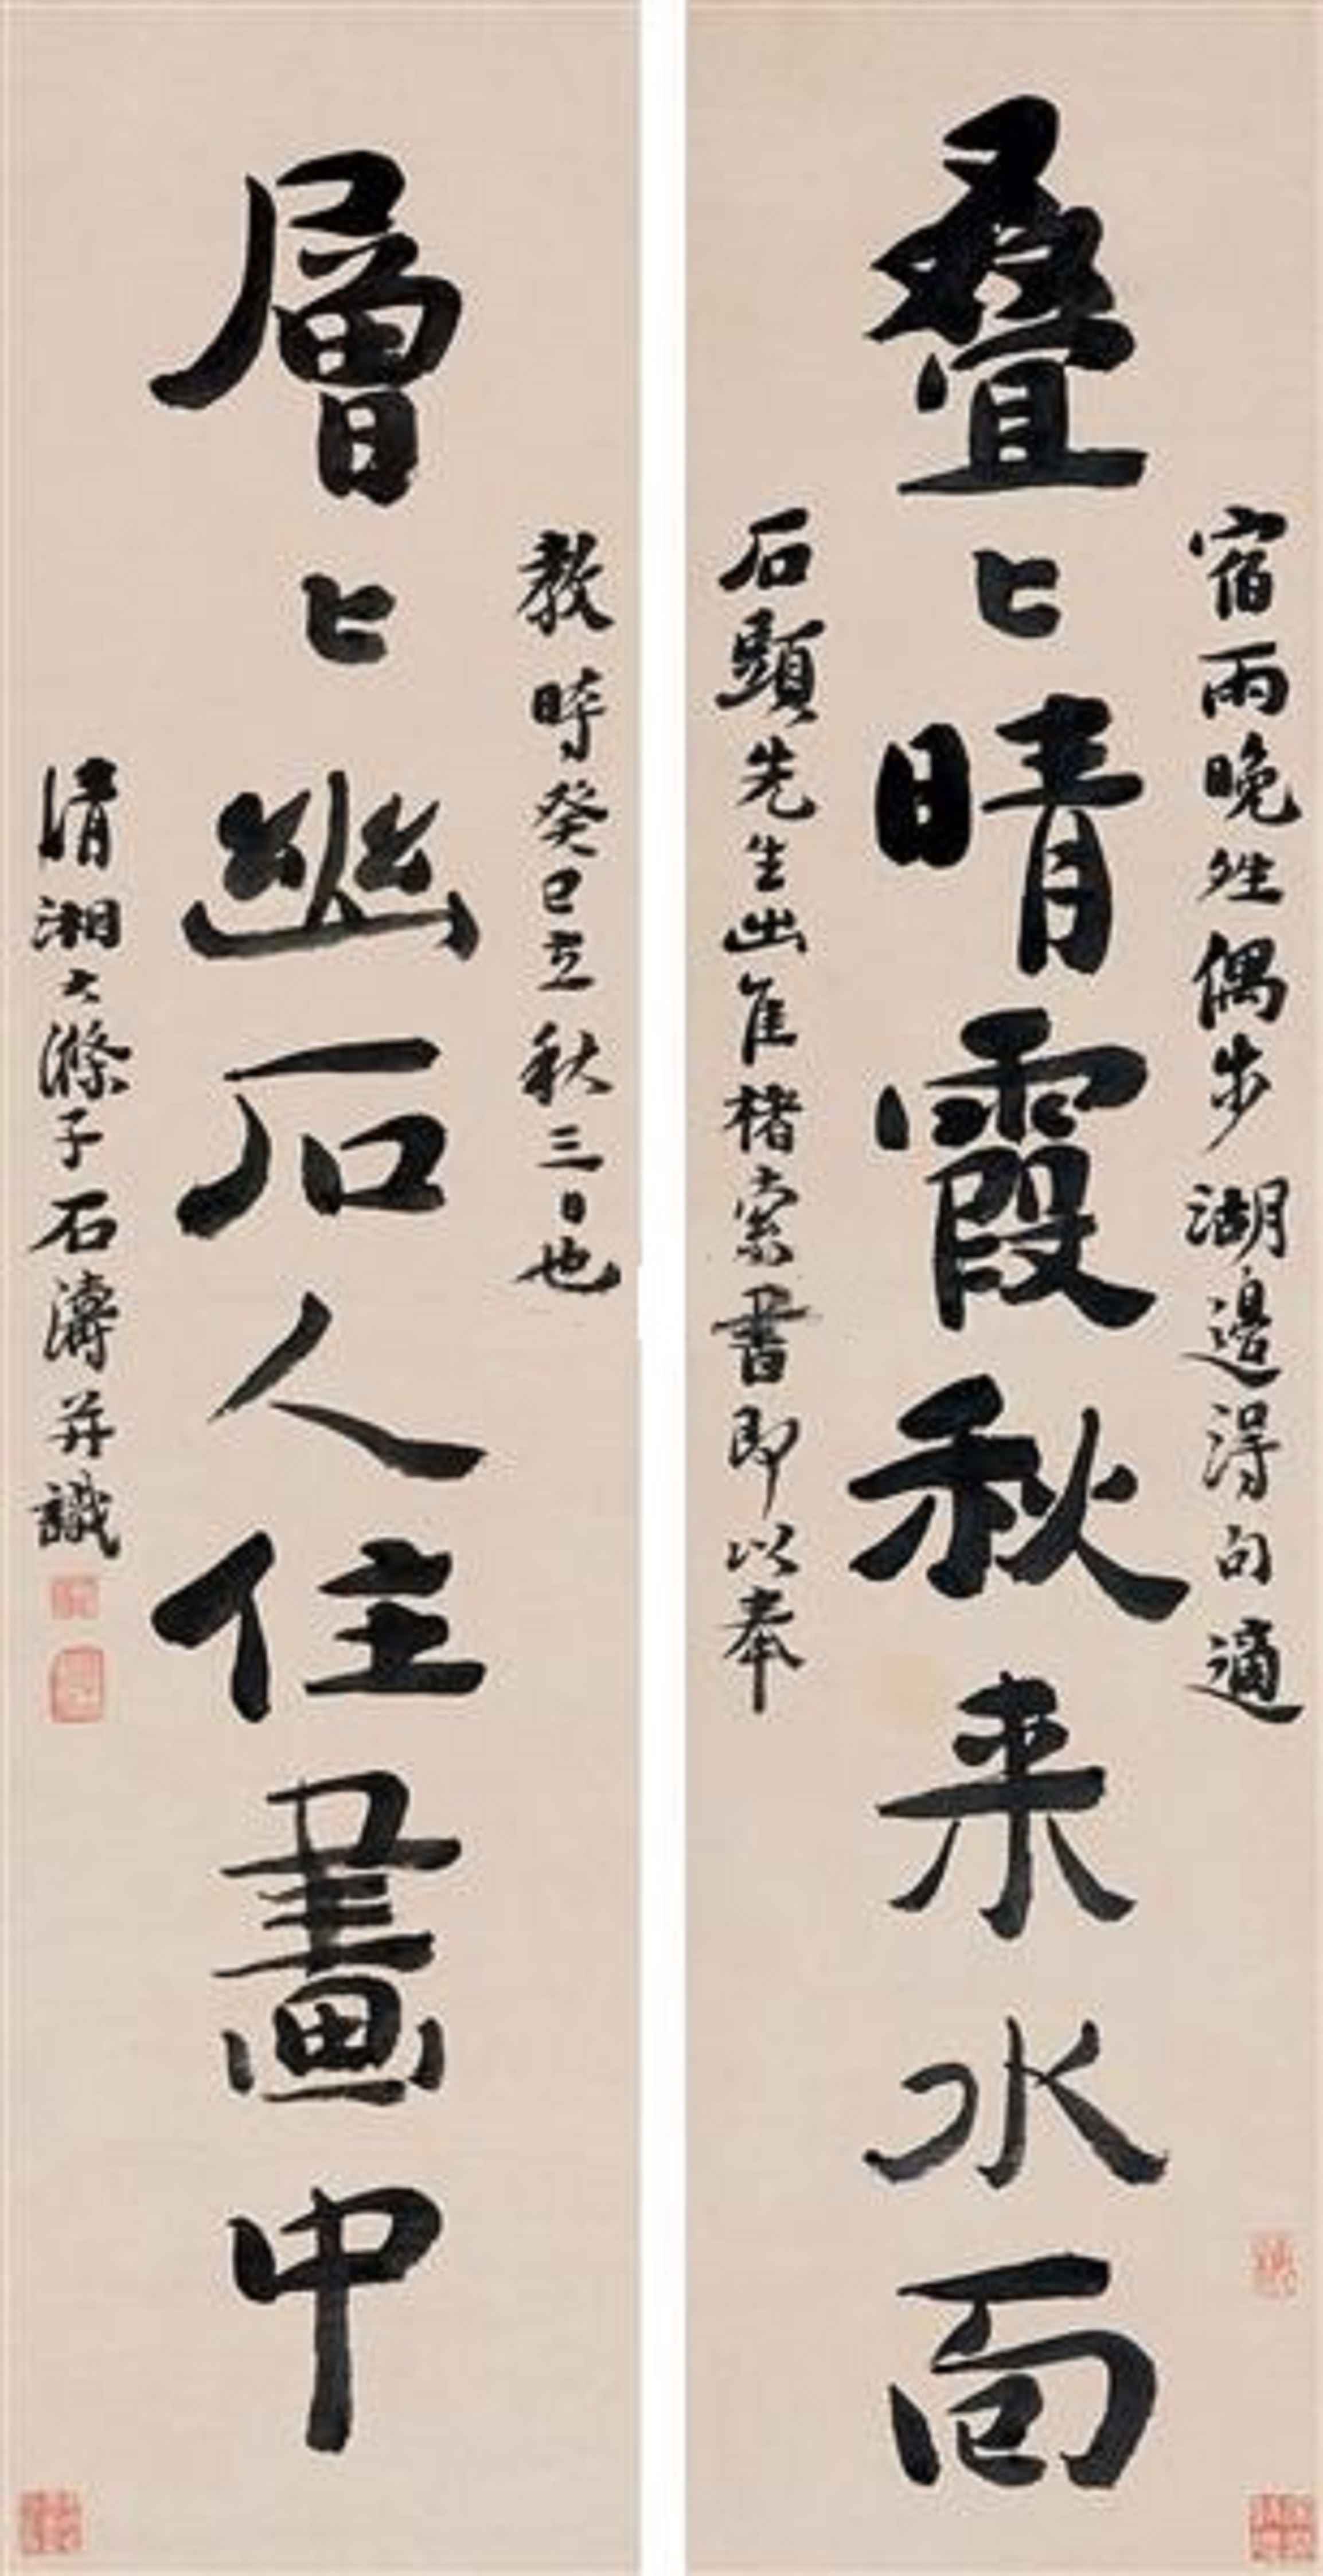 叠〻晴霞秋来水面
宿雨晚姓偶步湖邉得句適
石頭先生出隹楮索書即以奉
層〻幽石人住畫中
教時癸巳立秋三日也
清湘大滌子石濤并識